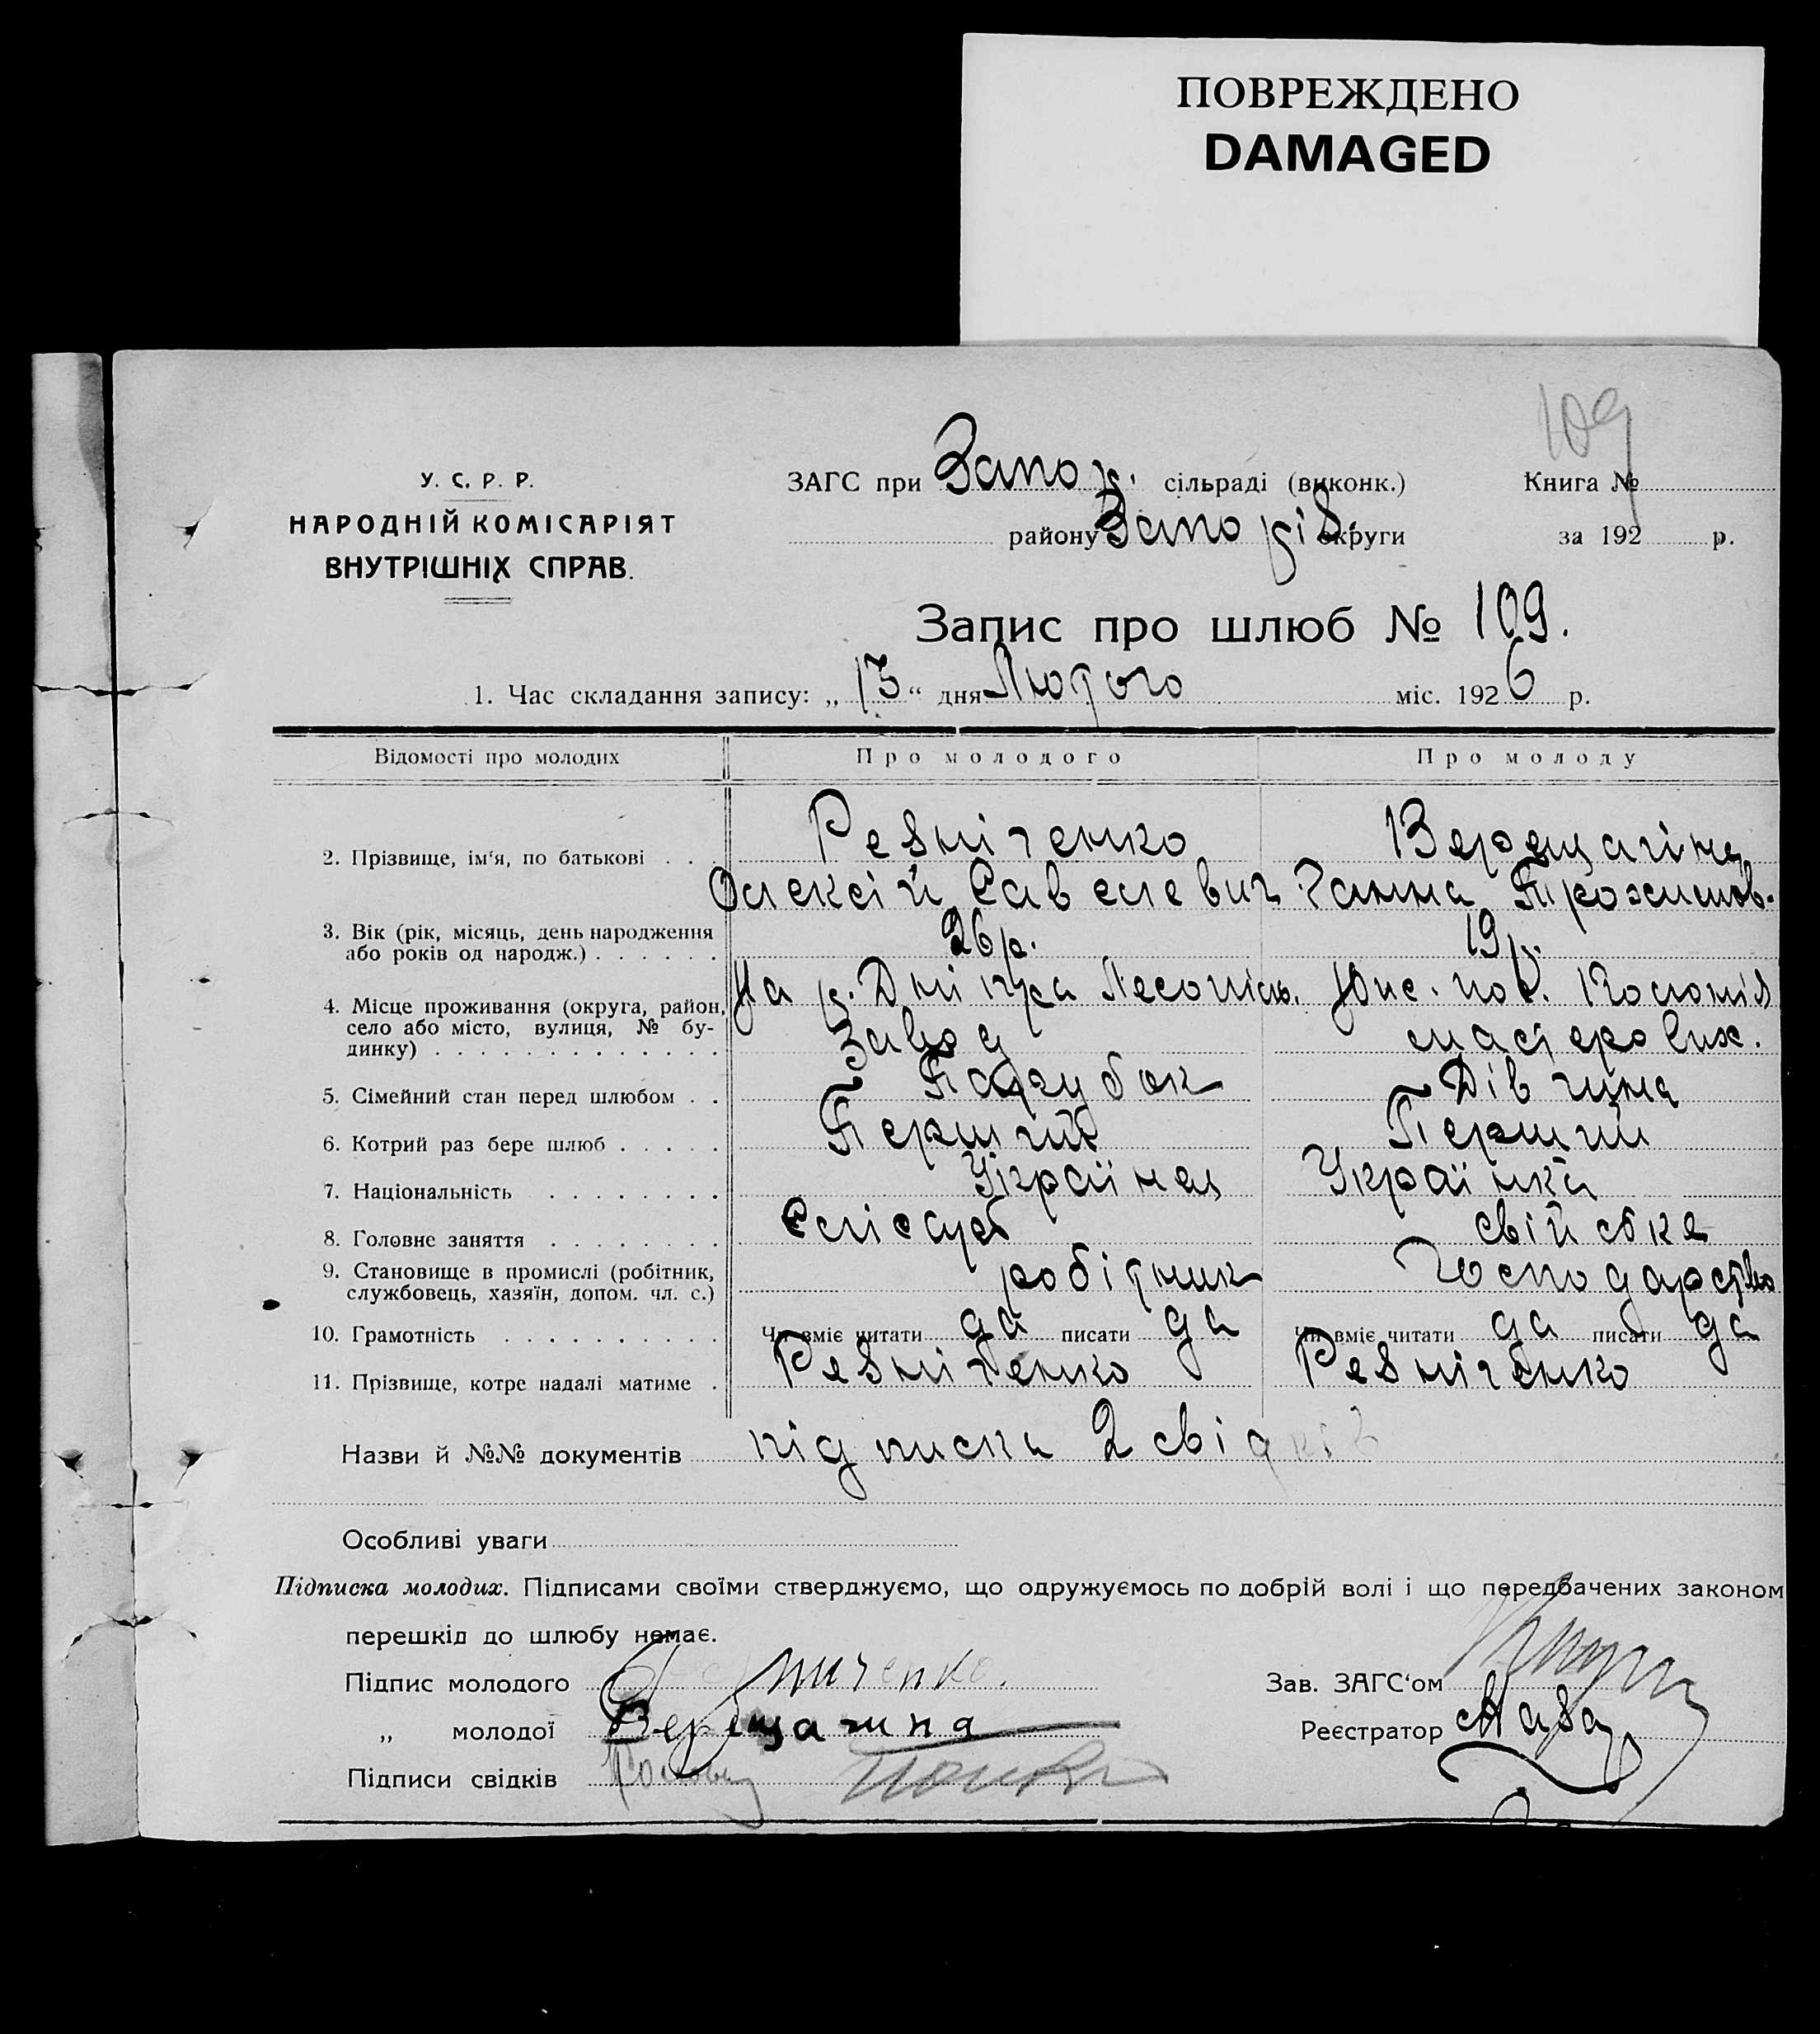 ПОВРЕЖДЕНО
DAMAGED
109
У. С. Р. Р.
НАРОДНІЙ КОМІСАРІЯТ
ВНУТРІШНІХ СПРАВ.
ЗАГС при Запор. сільраді (виконк.)
району Запоріз. округи
Книга №
за 192 р.
Запис про шлюб № 109.
1. Час складання запису: „13“ дня Лютого міс. 1926 р.
Відомості про молодих Про молодого Про молоду
2. Прізвище, ім'я, по батькові . . . Резніченко Верещагіна
Олексій Савелевич Ганна Трохимов.
3. Вік (рік, місяць, день народження
або років од народж.) . . . . . . 26 р. 19 р.
4. Місце проживання (округа, район,
село або місто, вулиця, № бу-
динку) . . . . . . . . . . . . .
На р. Дніпра Лесопіль. Юпс. пос. Колонія
Завод мастерових.
5. Сімейний стан перед шлюбом . . Парубок Дівчина
6. Котрий раз бере шлюб . . . . . Перший Перший
7. Національність . . . . . . . . Українец Українка
8. Головне заняття . . . . . . . . Слісарь свійське
9. Становище в промислі (робітник,
службовець, хазяїн, допом. чл. с.) робітник господарство
10. Грамотність . . . . . . . . . . Чи вміє читати да писати да Чи вміє читати да писати да
11. Прізвище, котре надалі матиме . Резніченко Резніченко
Назви й №№ документів підписка 2 свідків
Особливі уваги
Підписка молодих. Підписами своїми стверджуємо, що одружуємось по добрій волі і що передбачених законом
перешкід до шлюбу немає.
Підпис молодого
„ молодої Верещагина
Підписи свідків
Зав. ЗАГС'ом
Реєстратор